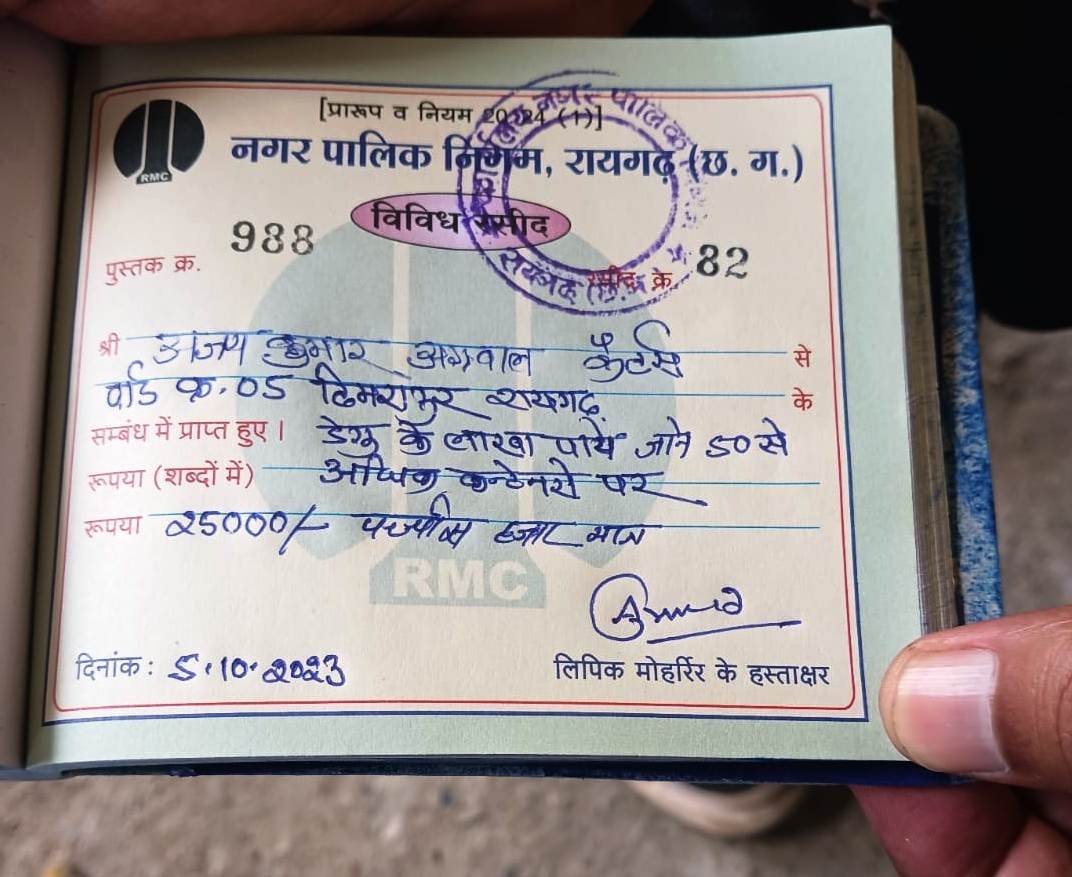 [प्रारूप व नियम 2024 (1)]
नगर पालिक निगम, रायगढ़ (छ. ग.)
RMC
विविध रसीद
पुस्तक क्र. 988 रसीद क्रे. 82
श्री अजय कुमार अग्रवाल से
वार्ड क्र. 05 ढिमरापुर रायगढ़ के
सम्बंध में प्राप्त हुए। डेंगू के लारवा पाये जाने 50 से
रूपया (शब्दों में) अधिक कन्टेनरो पर
रूपया 25000/- पच्चीस हजार मात्र
RMC
दिनांक: 5.10.2023 लिपिक मोहर्रिर के हस्ताक्षर